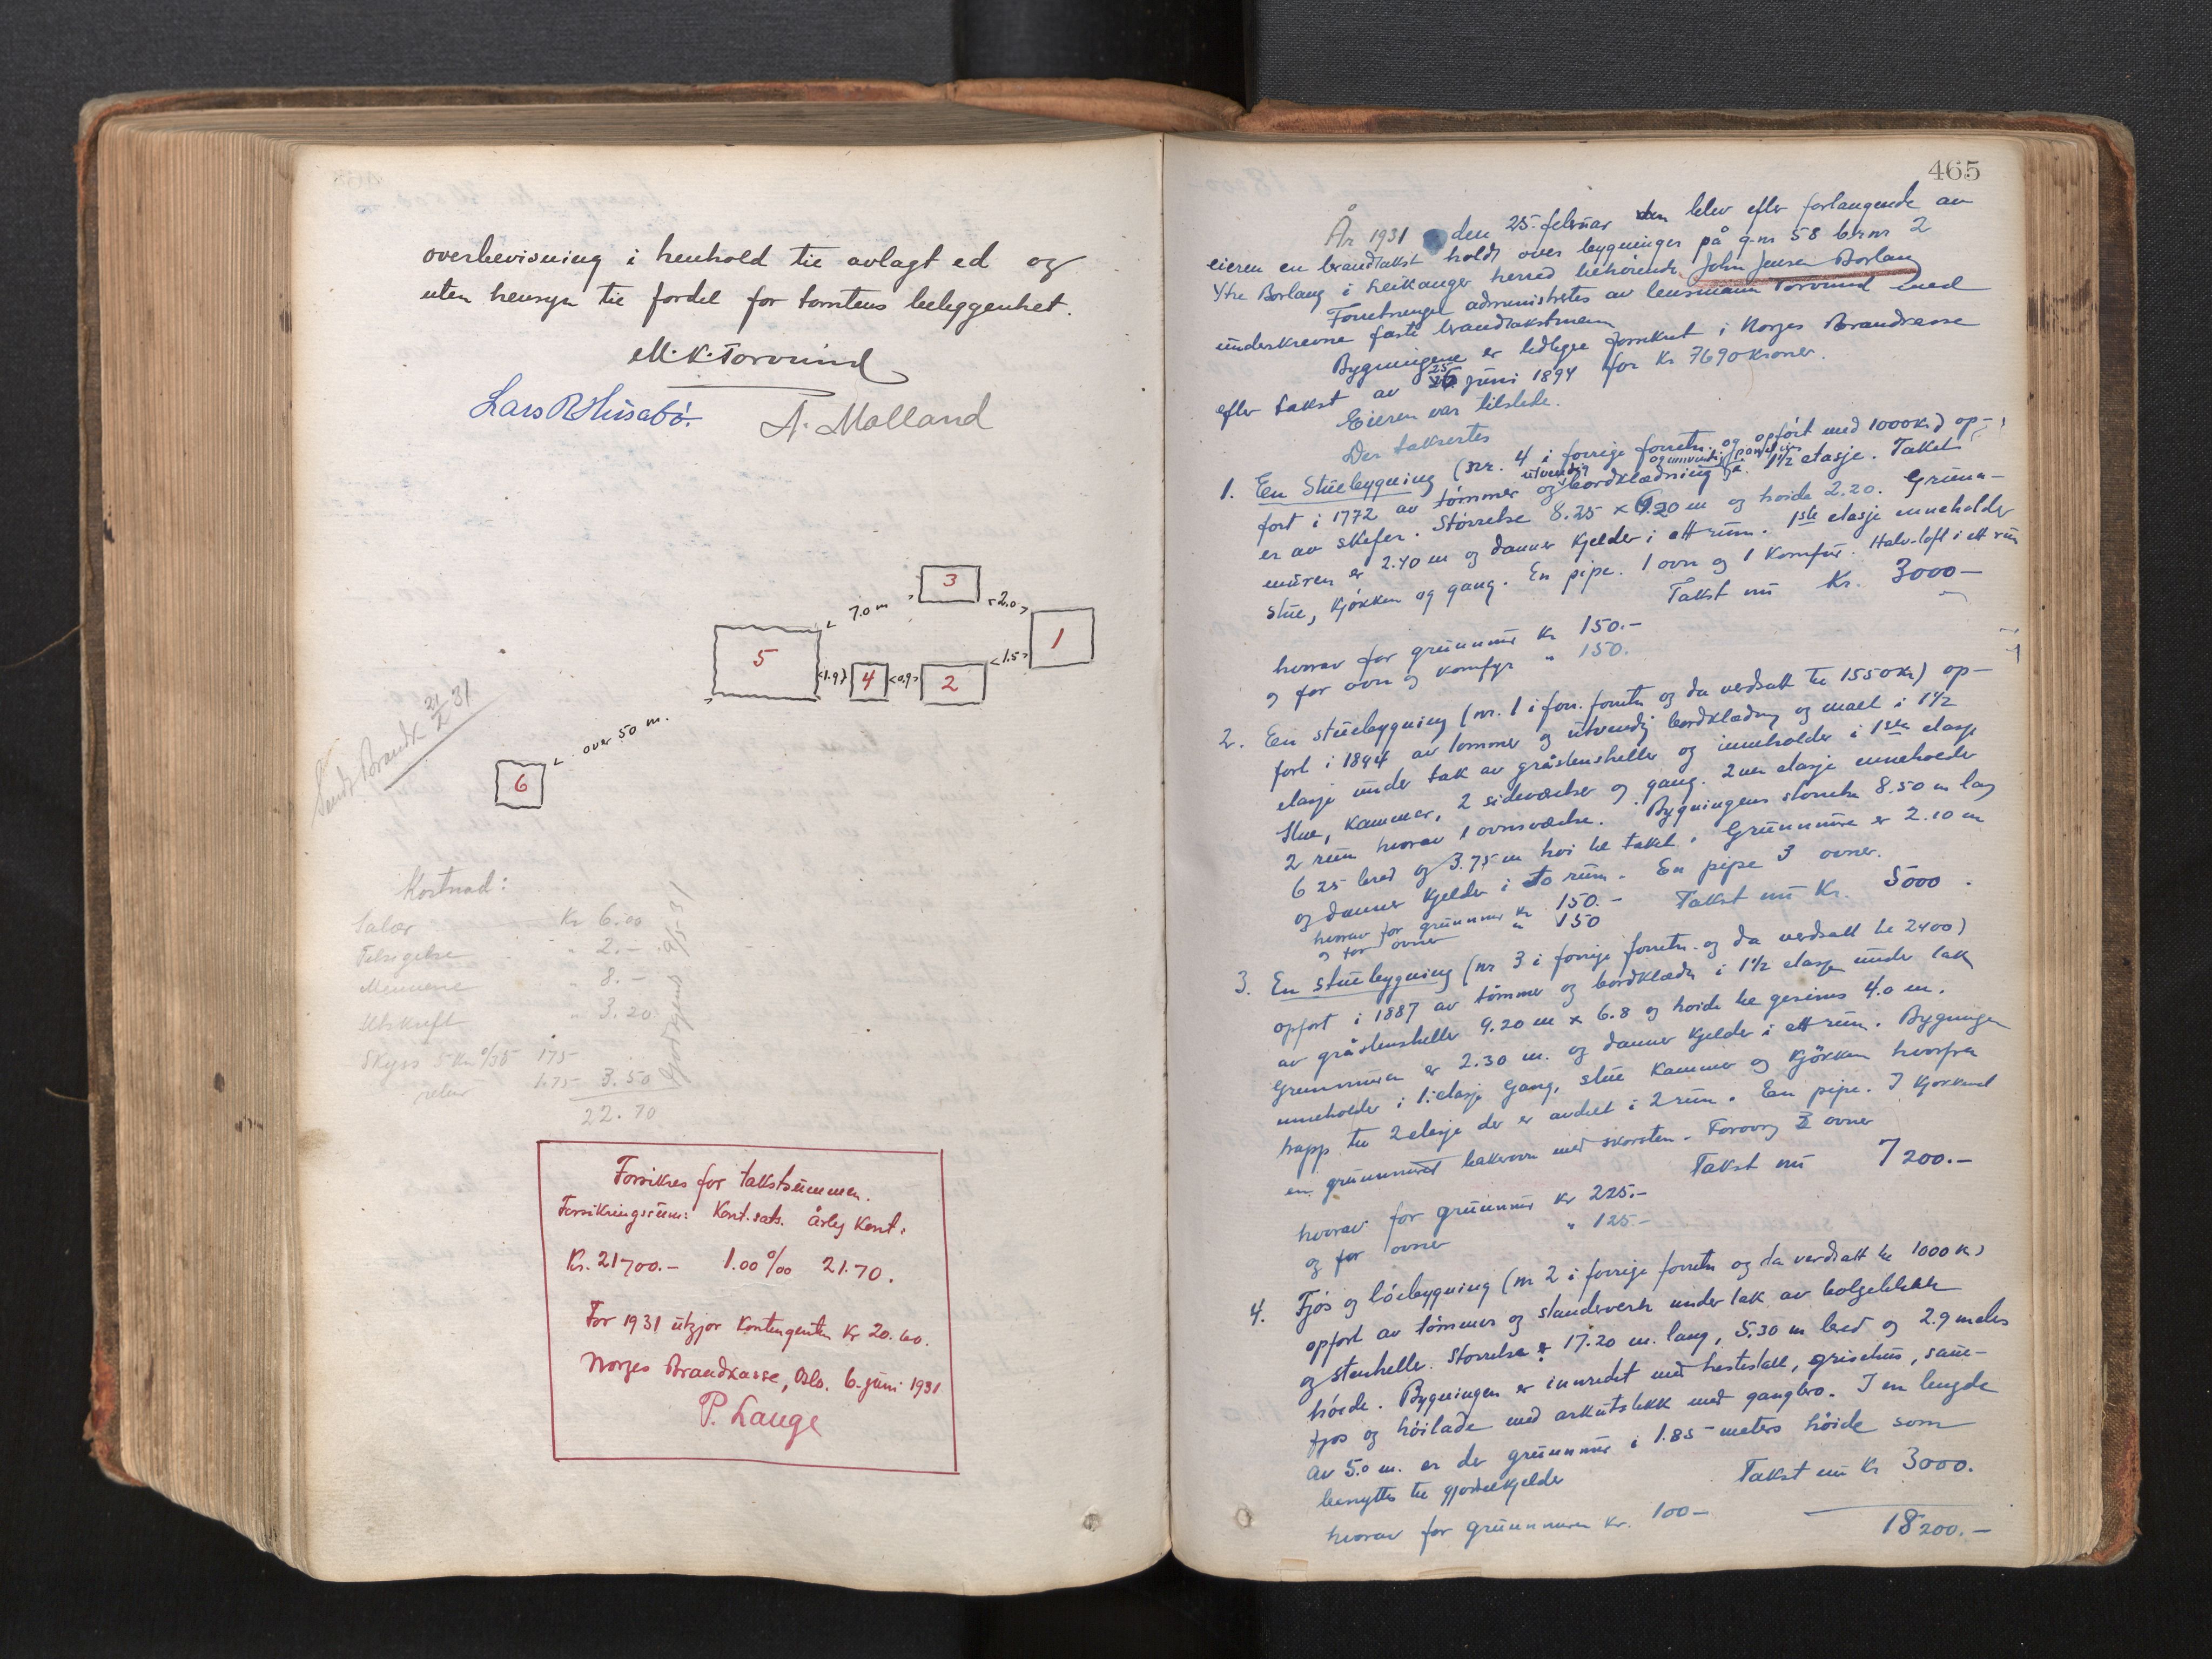 overbevisning i henhold til avlagt ed og
uten hensyn til fordel for tomtens beleggenhet.
M. K. Torvund
Lars R Husabø.
A. Molland
3
7.0 m
2.0
1
5
1.9
4
0.9
2
1.5
over 50 m.
6
Sendt Brandk 21/2 31
Kostnad:
Salær Kr 6.00
Tilsigelse " 2.-
Mennene " 8.-
Utskrift " 3.20
Skyss 5 km o/35 175
retur 1.75 3.50
22.70
Godkjent 9/5-31
Forsikres for takstsummen.
Forsikringssum: Kont.sats. årlig Kont.
Kr. 21700.- 1.00 o/oo 21.70.
For 1931 utgjør Kontingenten Kr 20.60.
Norges Brandkasse, Oslo. 6. juni 1931
P. Lange
465
År 1931 den 25. februar blev efter forlangende av
eieren en brandtakst holdt over bygninger på g.nr 58 br.nr 2
Ytre Borlaug i Leikanger herred tilhørende John Jensen Borlaug
Forretningen administretes av lensmann Torvund med
underskrevne faste brandtakstmenn
Bygningene er tidligere forsikret i Norges Brandkasse
efter takst av 25 juni 1894 for Kr 7690 kroner.
Eieren var tilstede.
Der taksertes
1. En Stuebygning (nr. 4 i forrige forretn. og opført med 1000 kr) op-
ført i 1772 av tømmer og utvendig bordklædning og innvendig panel i 1½ etasje. Taket
er av skifer. Størrelse 8.25 x 6.20 m og høide 2.20. Grunn-
muren er 2.40 m og danner Kjelder i ett rum. 1ste etasje inneholder
stue, kjøkken og gang. En pipe. 1 ovn og 1 Komfur. Halv-loft i ett rum
Takst nu Kr. 3000-
hvorav for grunnmur Kr 150.-
og for ovn og komfyr " 150.
2. En stuebygning (nr. 1 i forr. forretn og da verdsatt til 1550 kr) op-
ført i 1894 av tømmer og utvendig bordklædning og malt i 1½
etasje under tak av gråstensheller og inneholder i 1ste etasje
stue, kammer, 2 sideværelser og gang. 2nen etasje inneholder
2 rum hvorav 1 ovnsværelse. Bygningens størrelse 8.50 m lang
6 25 bred og 3.75 m høi til taket. Grunnmuren er 2.10 m
og danner Kjelder i to rum. En pipe 3 ovner.
hvorav for grunnmur Kr 150.- Takst nu Kr. 5000.
og for ovner " 150
3. En stuebygning (nr 3 i forrige forretn. og da verdsatt til 2400)
opført i 1887 av tømmer og bordklædn i 1½ etasje under tak
av gråstensheller 9.20 m x 6.8 og høide til gesims 4.0 m.
Grunnmuren er 2.30 m. og danner Kjelder i ett rum. Bygningen
inneholder i 1. etasje Gang, stue Kammer og Kjøkken hvorfra
trapp til 2 etasje der er avdelt i 2 rum. En pipe. I Kjøkkenet
en grunnmuret bakerovn med skorsten. Forøvrig 3 ovner
Takst nu 7200.-
hvorav for grunnmur Kr 225.-
og for ovner " 125.-
4. Fjøs og løebygning (nr 2 i forrige forretn og da verdsatt til 1000 kr)
opført av tømmer og standerverk under tak av bølgeblikk
og stenheller. Størrelse 17.20 m. lang, 5.30 m bred og 2.9 meters
høide. Bygningen er innredet med hestestall, grisehus, saue-
fjøs og høilade med gangbro. I en lengde
av 5.0 m. er der grunnmur i 1.85 meters høide som
benyttes til gjødselkjelder Takst nu Kr 3000.
hvorav for grunnmuren Kr. 100-
18200.-